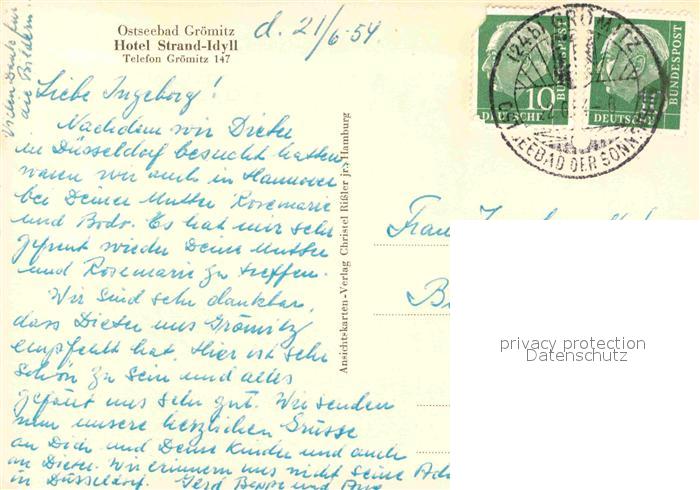 Vielen Dank für
die Bilder.
Ostseebad Grömitz
Hotel Strand-Idyll
Telefon Grömitz 147
d. 21/6.54
Liebe Ingeborg!
Nachdem wir Dieter
in Düsseldorf besucht hatten
waren wir auch in Hannover
bei Deiner Mutter Rosemarie
und Bodo. Es hat mir sehr
gefreut wieder Deine Mutter
und Rosemarie zu treffen.
Wir sind sehr dankbar,
dass Dieter uns Grömitz
empfehlt hat. Hier ist sehr
schön zu sein und alles
gefällt uns sehr gut. Wir senden
nun unsere herzlichen Grüsse
an Dich und Deine Kinder und auch
an Dieter. Wir erinnern uns nicht seine Adr
in Düsseldorf. Gerd und
Ansichtskarten-Verlag Christel Rißler jr., Hamburg
10
DEUTSCHE
BUNDESPOST
DEUTSCHE
BUNDESPOST
(24b) GRÖMITZ
OSTSEEBAD DER SONNENSEITE
Frau
privacy protection
Datenschutz